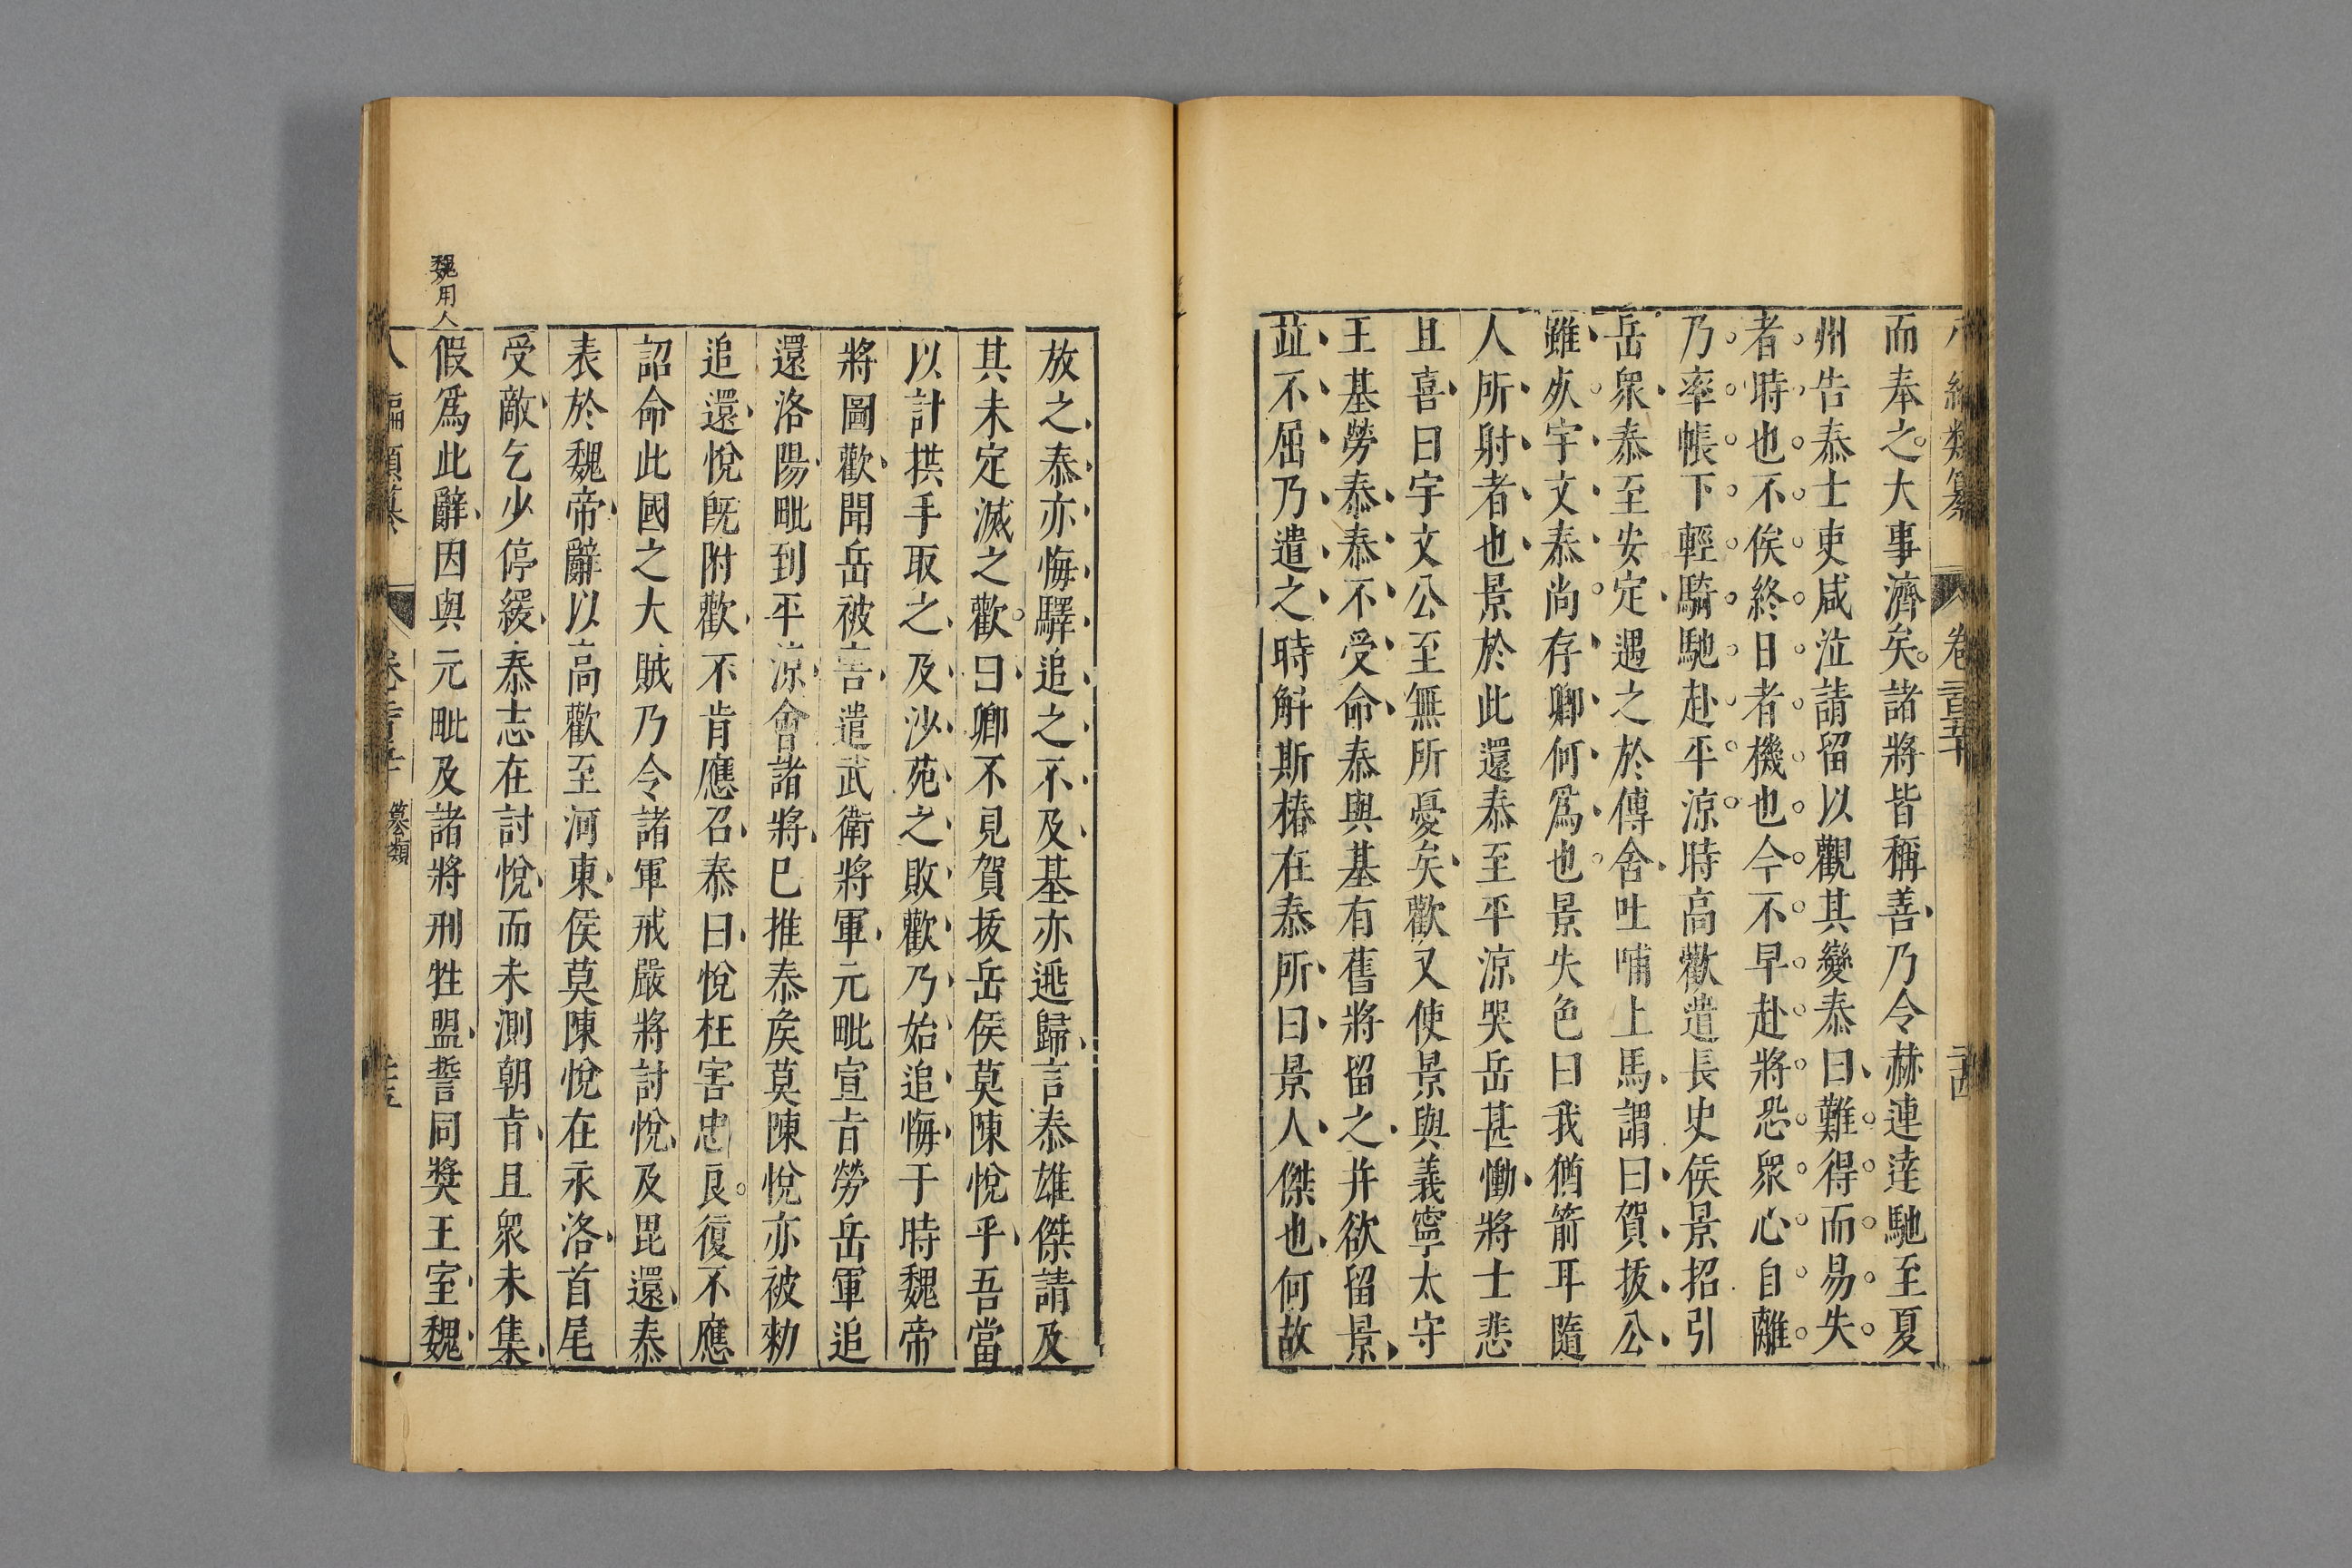 八編類纂 卷一百五十 二百四
而奉之大事濟矣諸將皆稱善乃令赫連達馳至夏
州告泰士吏咸泣請留以觀其變泰曰難得而易失
者時也不俟終日者機也今不早赴將恐衆心自離
乃率帳下輕騎馳赴平涼時高歡遣長史侯景招引
岳衆泰至安定遇之於傳舍吐哺上馬謂曰賀拔公
雖死宇文泰尚存卿何爲也景失色曰我猶箭耳隨
人所射者也景於此還泰至平涼哭岳甚慟將士悲
且喜曰宇文公至無所憂矣歡又使景與義寧太守
王基勞泰泰不受命泰與基有舊將留之并欲留景
並不屈乃遣之時斛斯椿在泰所曰景人傑也何故
放之泰亦悔驛追之不及基亦逃歸言泰雄傑請及
其未定滅之歡曰卿不見賀拔岳侯莫陳悅乎吾當
以計拱手取之及沙苑之敗歡乃始追悔于時魏帝
將圖歡聞岳被害遣武衛將軍元毗宣旨勞岳軍追
還洛陽毗到平涼會諸將已推泰矦莫陳悅亦被勑
追還悅旣附歡不肯應召泰曰悅枉害忠良復不應
詔命此國之大賊乃令諸軍戒嚴將討悅及毘還泰
表於魏帝辭以高歡至河東侯莫陳悅在永洛首尾
受敵乞少停緩泰志在討悅而未測朝旨且衆未集
假爲此辭因與元毗及諸將刑牲盟誓同獎王室魏
魏用人
八編類纂 墓類